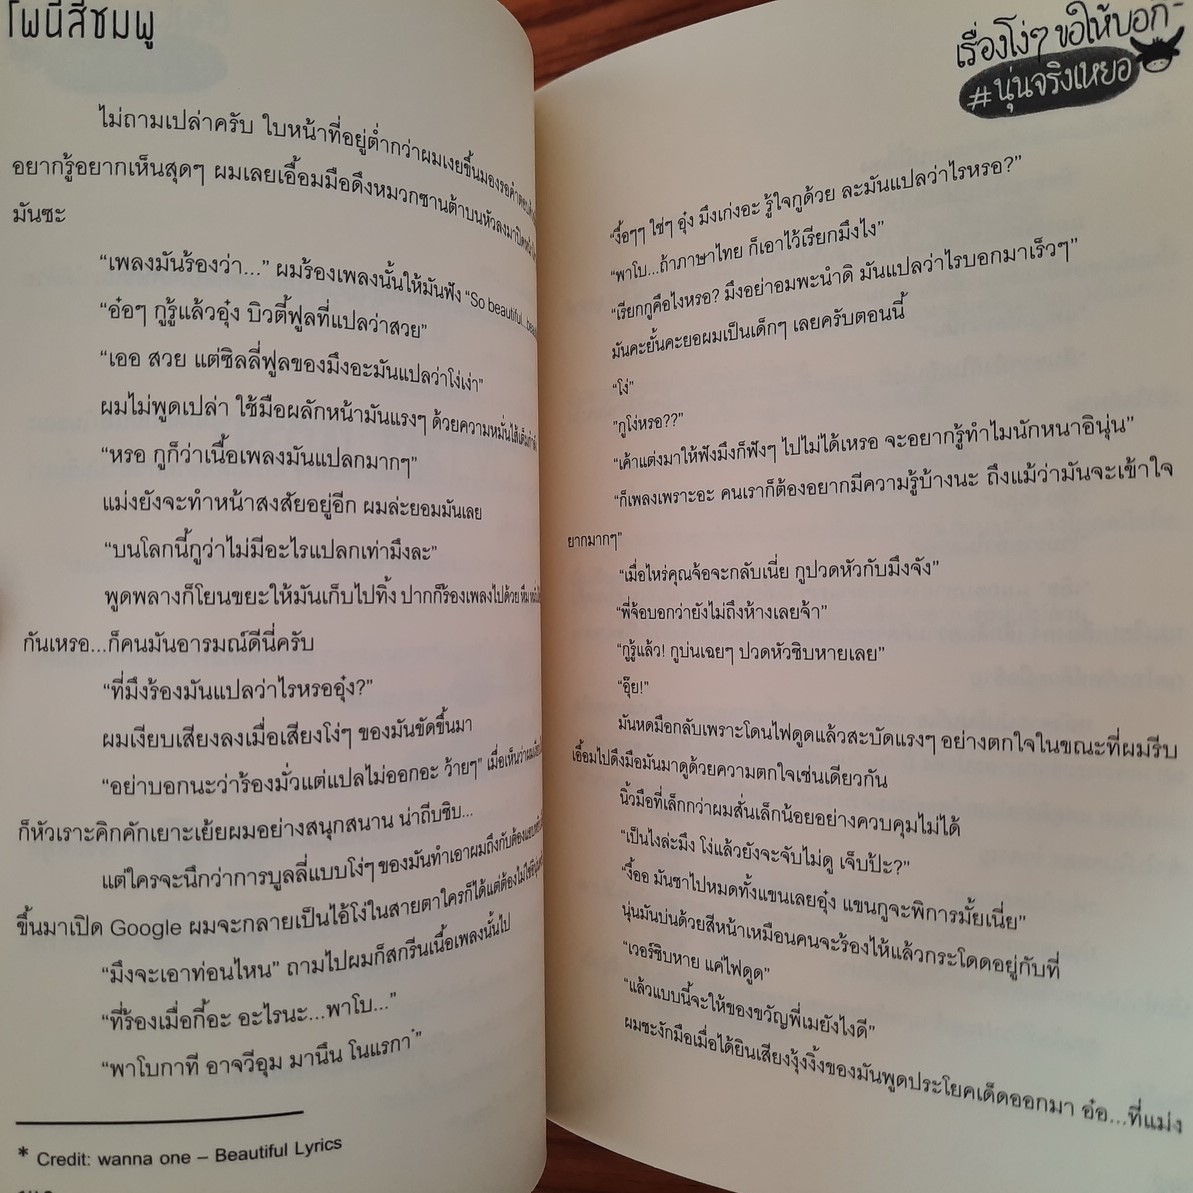 โพนี่สีชมพู
ไม่ถามเปล่าครับ ใบหน้าที่อยู่ต่ำกว่าผมเงยขึ้นมองรอคำตอบ
อยากรู้อยากเห็นสุดๆ ผมเลยเอื้อมมือดึงหมวกซานต้าบนหัวลงมาปิด
มันซะ
“เพลงมันร้องว่า...” ผมร้องเพลงนั้นให้มันฟัง “So beautiful...
“อ๋อๆ กูรู้แล้วอุ๋ง บิวตี้ฟูลที่แปลว่าสวย”
“เออ สวย แต่ซิลลี่ฟูลของมึงอะมันแปลว่าโง่เง่า”
ผมไม่พูดเปล่า ใช้มือผลักหน้ามันแรงๆ ด้วยความหมั่นไส้
“หรอ กูก็ว่าเนื้อเพลงมันแปลกมากๆ”
แม่งยังจะทำหน้าสงสัยอยู่อีก ผมล่ะยอมมันเลย
“บนโลกนี้กูว่าไม่มีอะไรแปลกเท่ามึงละ”
พูดพลางก็โยนขยะให้มันเก็บไปทิ้ง ปากก็ร้องเพลงไปด้วย
กันเหรอ...ก็คนมันอารมณ์ดีนี่ครับ
“ที่มึงร้องมันแปลว่าไรหรออุ๋ง?”
ผมเงียบเสียงลงเมื่อเสียงโง่ๆ ของมันขัดขึ้นมา
“อย่าบอกนะว่าร้องมั่วแต่แปลไม่ออกอะ ว้ายๆ” เมื่อเห็นว่าผมเงียบ
ก็หัวเราะคิกคักเยาะเย้ยผมอย่างสนุกสนาน น่าถีบชิบ...
แต่ใครจะนึกว่าการบูลลี่แบบโง่ๆ ของมันทำเอาผมถึงกับต้อง
ขึ้นมาเปิด Google ผมจะกลายเป็นไอ้โง่ในสายตาใครก็ได้แต่ต้องไม่ใช่
“มึงจะเอาท่อนไหน” ถามไปผมก็สกรีนเนื้อเพลงนั้นไป
“ที่ร้องเมื่อกี้อะ อะไรนะ...พาโบ...”
“พาโบกาที อาจวีอุม มานึน โนแรกา*”
* Credit: wanna one – Beautiful Lyrics
เรื่องโง่ๆ ขอให้บอก
#นุ่นจริงเหยอ
“งื้อๆๆ ใช่ๆ อุ๋ง มึงเก่งอะ รู้ใจกูด้วย ละมันแปลว่าไรหรอ?”
“พาโบ...ถ้าภาษาไทย ก็เอาไว้เรียกมึงไง”
“เรียกกูคือไงหรอ? มึงอย่าอมพะนำดิ มันแปลว่าไรบอกมาเร็วๆ”
มันคะยั้นคะยอผมเป็นเด็กๆ เลยครับตอนนี้
“โง่”
“กูโง่หรอ??”
“เค้าแต่งมาให้ฟังมึงก็ฟังๆ ไปไม่ได้เหรอ จะอยากรู้ทำไมนักหนาอินุ่น”
“ก็เพลงเพราะอะ คนเราก็ต้องอยากมีความรู้บ้างนะ ถึงแม้ว่ามันจะเข้าใจ
ยากมากๆ”
“เมื่อไหร่คุณจ้อจะกลับเนี่ย กูปวดหัวกับมึงจัง”
“พี่จ้อบอกว่ายังไม่ถึงห้างเลยจ้า”
“กูรู้แล้ว! กูบ่นเฉยๆ ปวดหัวชิบหายเลย”
“อุ๊ย!”
มันหดมือกลับเพราะโดนไฟดูดแล้วสะบัดแรงๆ อย่างตกใจในขณะที่ผมรีบ
เอื้อมไปดึงมือมันมาดูด้วยความตกใจเช่นเดียวกัน
นิ้วมือที่เล็กกว่าผมสั่นเล็กน้อยอย่างควบคุมไม่ได้
“เป็นไงล่ะมึง โง่แล้วยังจะจับไม่ดู เจ็บป้ะ?”
“งื้ออ มันชาไปหมดทั้งแขนเลยอุ๋ง แขนกูจะพิการมั้ยเนี่ย”
นุ่นมันบ่นด้วยสีหน้าเหมือนคนจะร้องไห้แล้วกระโดดอยู่กับที่
“เวอร์ชิบหาย แค่ไฟดูด”
“แล้วแบบนี้จะให้ของขวัญพี่เมยังไงดี”
ผมชะงักมือเมื่อได้ยินเสียงงุ้งงิ้งของมันพูดประโยคเด็ดออกมา อ๋อ...ที่แม่ง